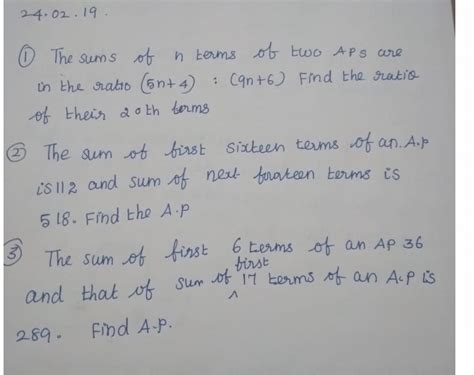 24.02.19.
① The sums of n terms of two APs are
in the ratio (5n+4) : (9n+6) Find the ratio
of their 20th terms
② The sum of first sixteen terms of an A.P
is 112 and sum of next fourteen terms is
518. Find the A.P
③ The sum of first 6 terms of an AP 36
and that of sum of first 17 terms of an A.P is
289. Find A.P.